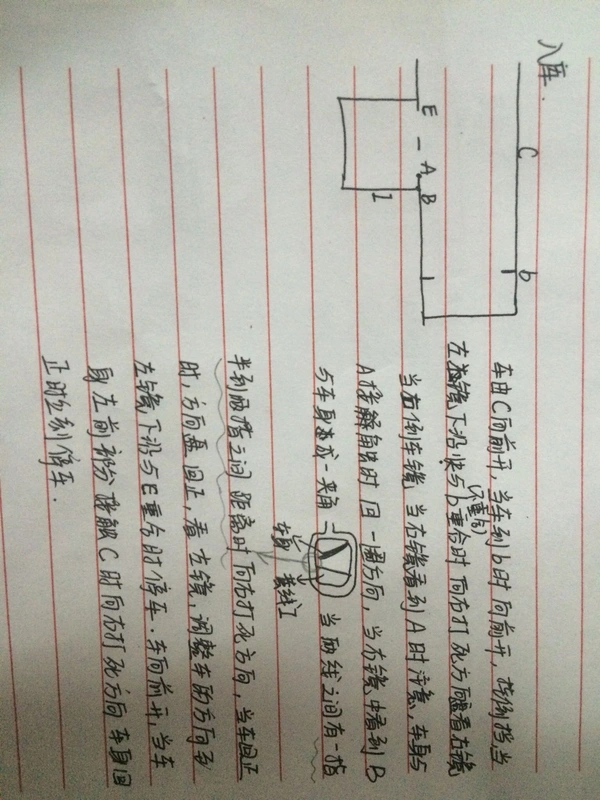 入库.
C
b
E
A
B
1
车由C向前开，当车到b时向前开，挂倒档当
左镜下沿快与b重合时向右打死方向盘看右镜
(不重合)
当右倒车镜 当右镜看到A时注意，车身与
A接触角时回一圈方向，当右镜中看到B
与车身 成一夹角 当两线之间有一指
车身
黄线I
半到两指之间距离时向右打死方向，当车回正
时，方向盘回正，看左镜，调整车的方向到
左镜下沿与E重合时停车.车向前开，当车
身左前部分接触C时向右打死方向 车身回
正时立刻停车.